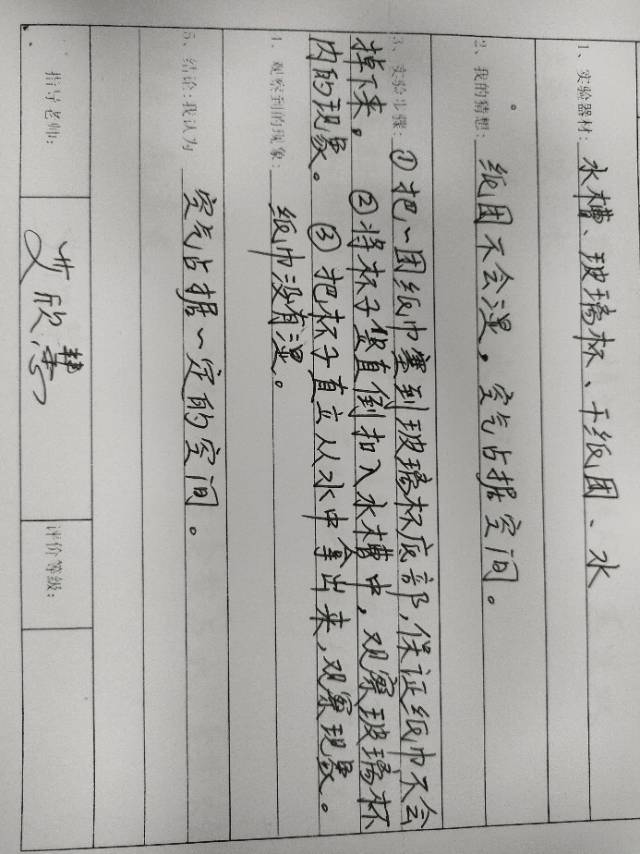 1、实验器材：水槽、玻璃杯、干纸团、水
2、我的猜想：纸团不会湿。空气占据空间。
3、实验步骤：①把一团纸巾塞到玻璃杯底部，保证纸巾不会
掉下来。②将杯子竖直倒扣入水槽中，观察玻璃杯
内的现象。③把杯子直立从水中拿出来，观察现象。
4、观察到的现象：纸巾没有湿。
5、结论：我认为 空气占据一定的空间。
指导老师： 艾欣慧 评价等级：